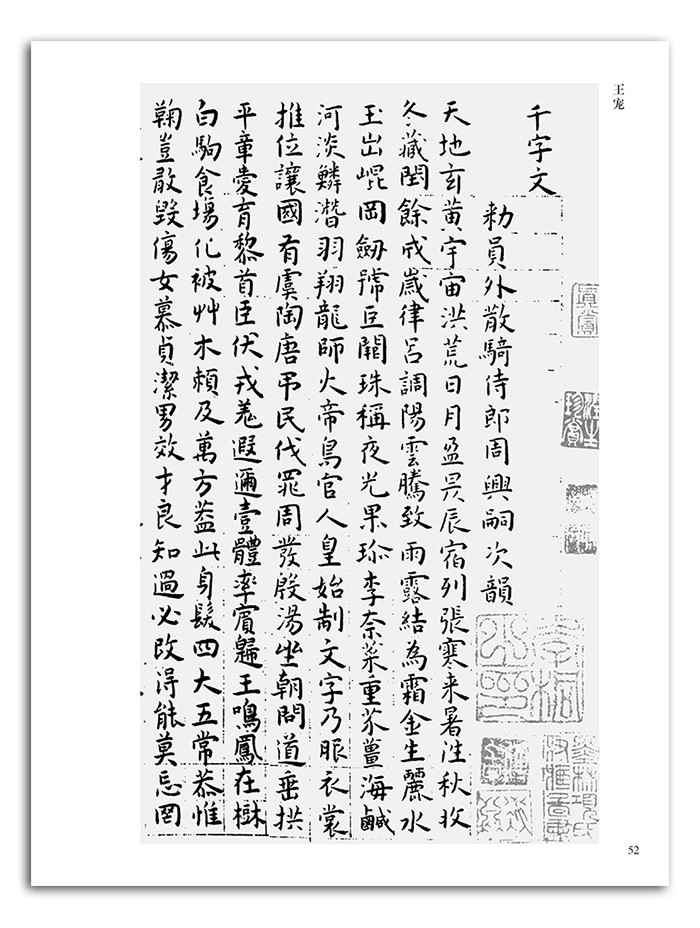 王宠
千字文
勑員外散騎侍郎周興嗣次韻
天地玄黃宇宙洪荒日月盈昃辰宿列張寒来暑往秋收
冬藏閏餘成歲律呂調陽雲騰致雨露結為霜金生麗水
玉出崐岡劒號巨闕珠稱夜光果珎李柰菜重芥薑海鹹
河淡鱗潛羽翔龍師火帝鳥官人皇始制文字乃服衣裳
推位讓國有虞陶唐弔民伐罪周發殷湯坐朝問道垂拱
平章愛育黎首臣伏戎羌遐邇壹體率賓歸王鳴鳳在樹
白駒食場化被艸木賴及萬方蓋此身髮四大五常恭惟
鞠豈敢毀傷女慕貞潔男效才良知過必改得能莫忘罔
真賞
52